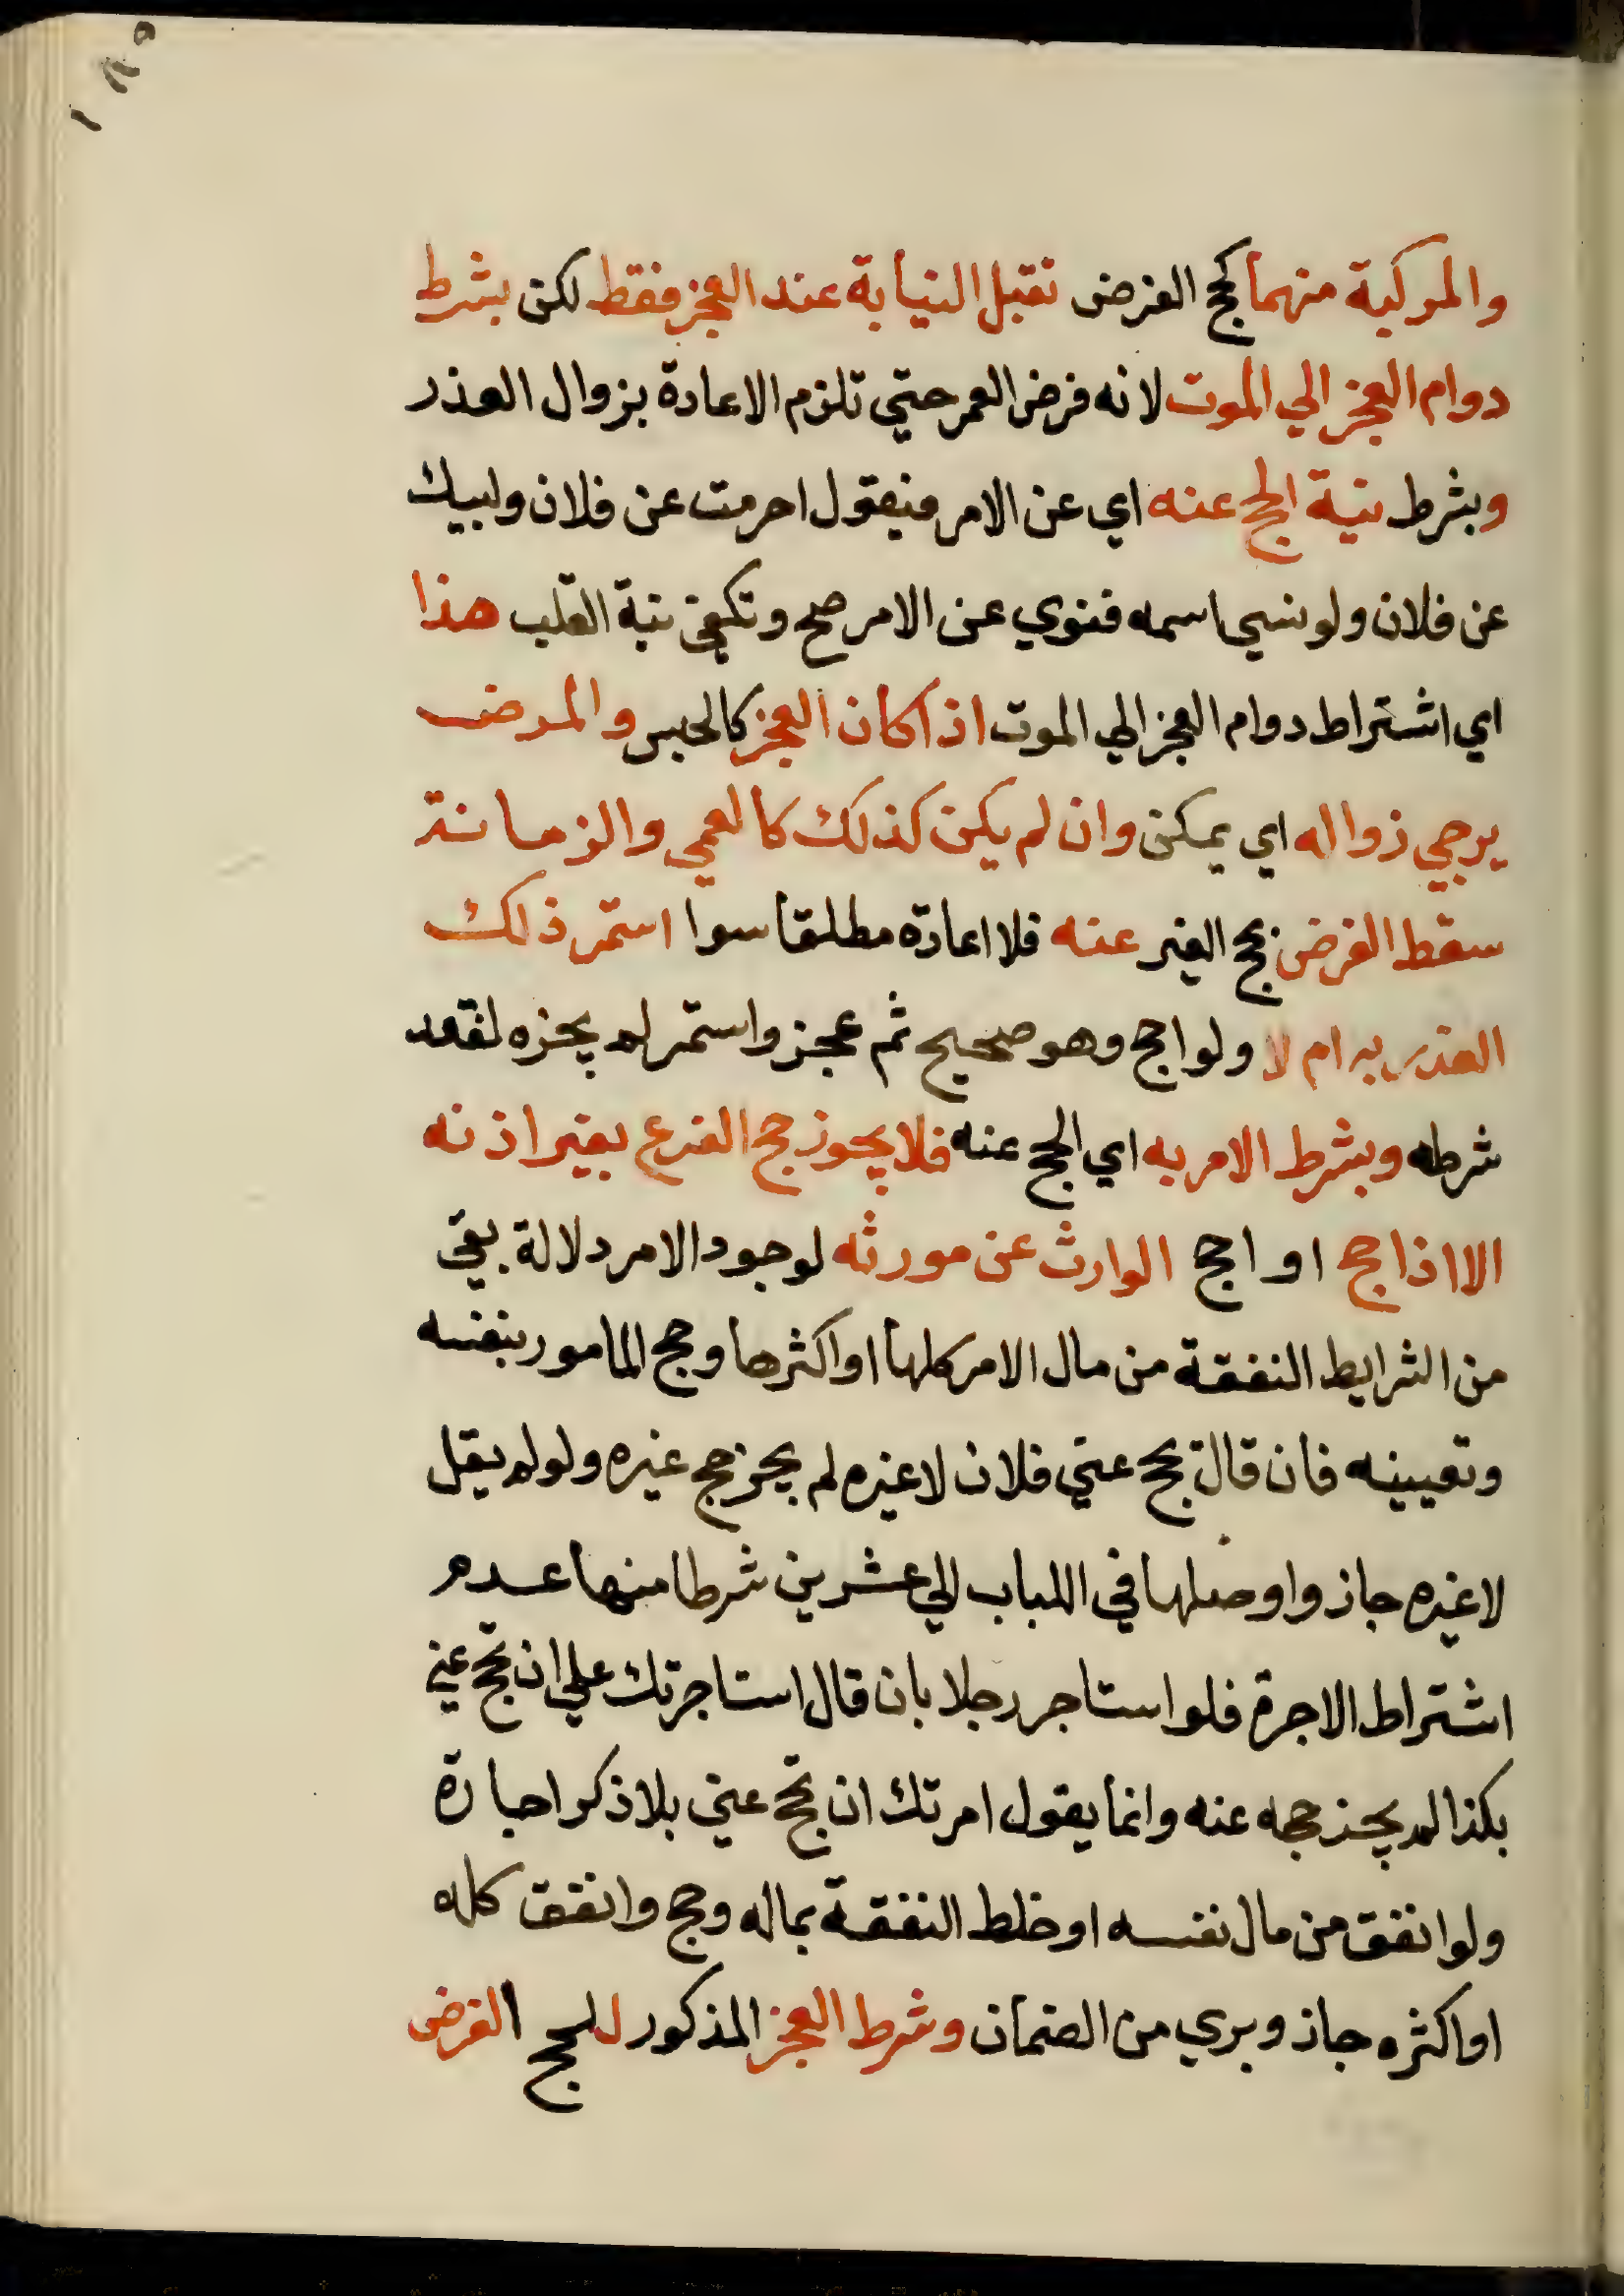 ١٨٥
والمركبة منهما كحج الفرض تقبل النيابة عند العجز فقط لكن بشرط
دوام العجز الي الموت لانه فرض العمر حتي تلزم الاعادة بزوال العذر
وبشرط نية الحج عنه اي عن الامر فيقول احرمت عن فلان ولبيك
عن فلان ولو نسي اسمه فنوي عن الامر صح وتكفي نية القلب هذا
اي اشتراط دوام العجز الي الموت اذا كان العجز كالحبس والمرض
يرجي زواله اي يمكن وان لم يكن كذلك كالعمي والزمانة
سقط الفرض بحج الغير عنه فلا اعادة مطلقا سوا استمر ذلك
العذر به ام لا ولو احج وهو صحيح ثم عجز واستمر لم يجزه لفقد
شرطه وبشرط الامر به اي الحج عنه فلا يجوز حج الغير بغير اذنه
الا اذا حج او احج الوارث عن مورثه لوجود الامر دلالة بقي
من الشرايط النفقة من مال الامر كلها او اكثرها وحج المامور بنفسه
وتعيينه فان قال يحج عني فلان لا غيره لم يجز حج غيره ولو لم يقل
لا غيره جاز واوصلها في اللباب الي عشرين شرطا منها عدم
اشتراط الاجرة فلو استاجر رجلا بان قال استاجرتك علي ان تحج عني
بكذا لم يجز حجه عنه وانما يقول امرتك ان تحج عني بلا ذكر اجارة
ولو انفق من مال نفسه او خلط النفقة بماله وحج وانفق كله
او اكثره جاز وبري من الضمان وشرط العجز المذكور للحج الفرض